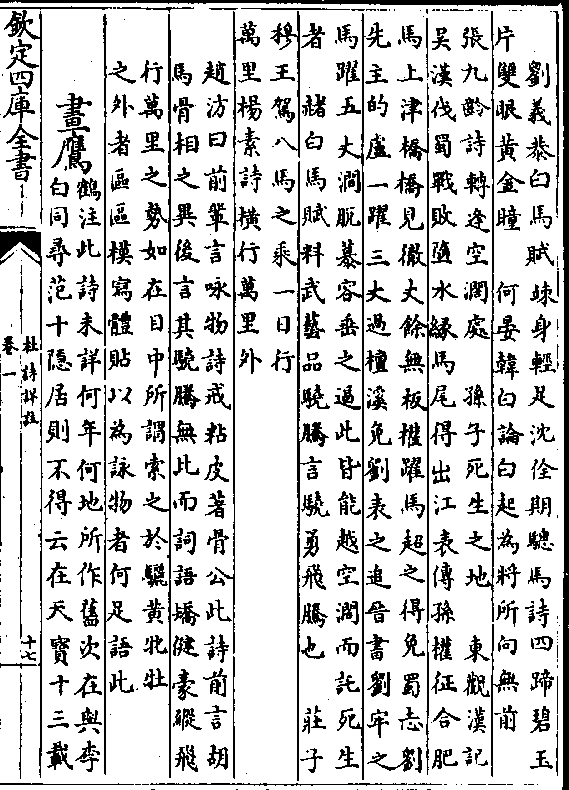 劉義恭白馬賦竦身輕足沈佺期驄馬詩四蹄碧玉
片雙眼黄金瞳　何晏韓白論白起為將所向無前
張九齡詩轉逢空濶處　孫子死生之地　東觀漢記
吴漢伐蜀戰敗墮水縁馬尾得出江表傳孫權征合肥
馬上津橋橋見徹丈餘無板權躍馬超之得免蜀志劉
先主的盧一躍三丈過檀溪免劉表之追晉書劉牢之
馬躍五丈澗脱慕容垂之逼此皆能越空濶而託死生
者　赭白馬賦料武藝品驍騰言驍勇飛騰也　莊子
穆王駕八馬之乘一日行
萬里楊素詩横行萬里外
趙汸曰前輩言咏物詩戒粘皮著骨公此詩前言胡
馬骨相之異後言其驍騰無比而詞語矯健豪縱飛
行萬里之勢如在目中所謂索之於驪黄牝牡
之外者區區模寫體貼以為詠物者何足語此
畫鷹鶴注此詩未詳何年何地所作舊次在與李
白同尋范十隠居則不得云在天寶十三載
欽定四庫全書
杜詩詳註
卷一
十七